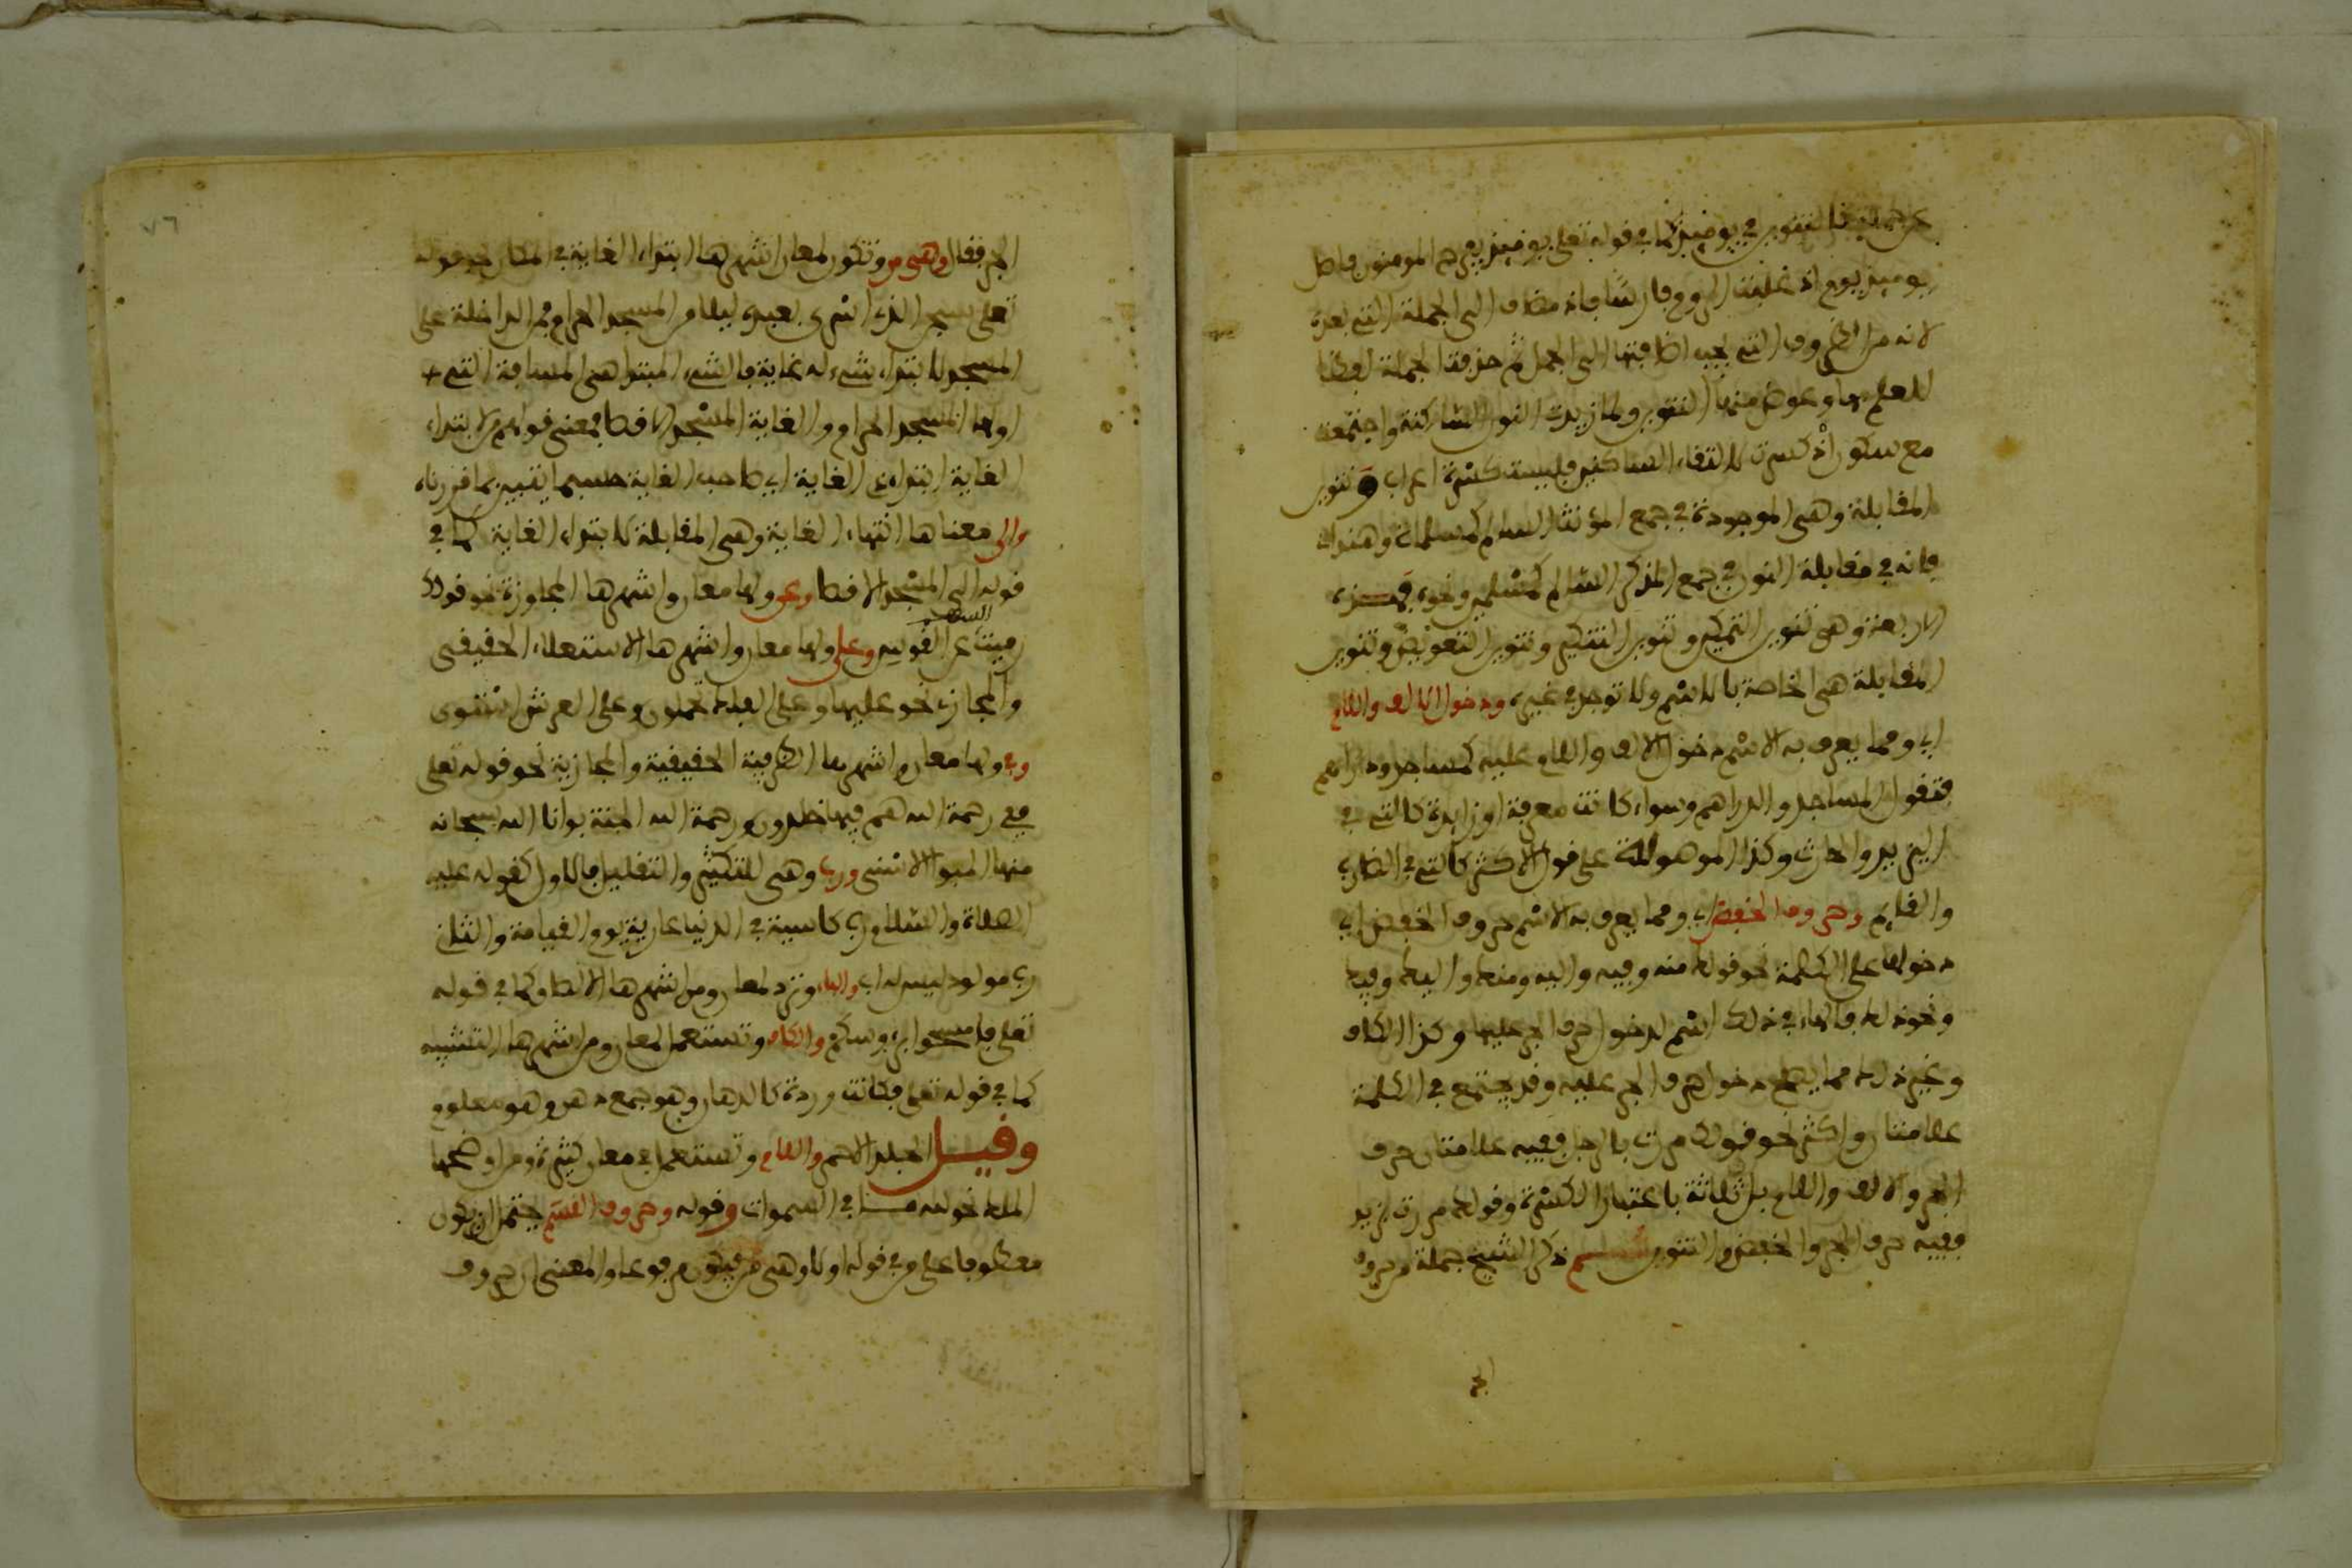 كما في قوله تعلى يومئذ يفرح المومنون فاصل
يومئذ يوم اذ غلبت الروم فارسا فاذ مضاف الى الجملة التي بعده
لانه من الظروف التي يجب اضافتها الى الجمل ثم حذفت الجملة لفظا
للعلم بها وعوض منها التنوين ولما زيدت النون الساكنة واجتمعت
مع سكون اذ كسرت لالتقاء الساكنين فليست كسرة اعراب وتنوين
المقابلة وهي الموجودة في جمع المؤنث السالم كمسلمات وهندات
فانه في مقابلة النون في جمع المذكر السالم كمسلمين ونحوه فهذه
الاربعة وهي تنوين التمكين وتنوين التنكير وتنوين التعويض وتنوين
المقابلة هي الخاصة بالاسم ولا توجد في غيره ودخول الالف واللام
اي ومما يعرف به الاسم دخول الالف واللام عليه كمساجد ودراهم
فتقول المساجد والدراهم وسواء كانت معرفة او زايدة كالتي في
اليزيد والحارث وكذا الموصولة على قول الاكثر كالتي في الضارب
والقايم وحروف الخفض اي ومما يعرف به الاسم حروف الخفض اي
دخولها على الكلمة نحو قولك منه وفيه واليه ومنك واليك وفيك
ونحو ذلك فالهاء في ذلك اسم لدخول حرف الجر عليها وكذا الكاف
وغير ذلك مما يصح دخول حرف الجر عليه وقد يجتمع في الكلمة
علامتان واكثر نحو قولك مررت بالرجل ففيه علامتان حرف
الجر والالف واللام بل ثلاثة باعتبار الكسرة وقولك مررت بزيد
ففيه حرف الجر والخفض والتنوين ثم ذكر الشيخ جملة من حروف
الجر
٧٦
الجر فقال وهي من وتكون لمعان اشهرها ابتداء الغاية في المكان نحو قوله
تعلى سبحن الذي اسرى بعبده ليلا من المسجد الحرام فمن الداخلة على
المسجد لابتداء شيء له غاية فالشيء المبتدا هي المسافة التي
اولها المسجد الحرام والغاية المسجد الاقصا فمعنى قولهم من لابتداء
الغاية ابتداء ذي الغاية اي صاحب الغاية حسبما يتبين بما قررناه
والى معناها انتهاء الغاية وهي المقابلة لابتداء الغاية كما في
قوله الى المسجد الاقصا وعن ولها معان واشهرها المجاوزة نحو قولك
رميت السهم عن القوس وعلى ولها معان واشهرها الاستعلاء الحقيقي
والمجازي نحو عليها وعلى الفلك تحملون وعلى العرش استوى
وفي ولها معان واشهرها الظرفية الحقيقية والمجازية نحو قوله تعلى
ففي رحمة الله هم فيها خلدون ورحمة الله الجنة بوانا الله سبحانه
منها المبوأ الاسنى ورب وهي للتكثير والتقليل فالاول كقوله عليه
الصلاة والسلام رب كاسية في الدنيا عارية يوم القيامة والثان
رب مولود ليس له اب والباء وترد لمعان ومن اشهرها الالصاق كما في قوله
تعلى فامسحوا برءوسكم والكاف وتستعمل لمعان ومن اشهرها التشبيه
كما في قوله تعلى فكانت وردة كالدهان وهو جمع دهن وهو معلوم
وقيل الجلد الاحمر واللام وتستعمل في معان كثيرة ومن اوضحها
الملك نحو لله ما في السموات وقوله وحروف القسم يحتمل ان يكون
معطوفا على من في قوله اولا وهي من فيكون مرفوعا والمعنى ان حروف